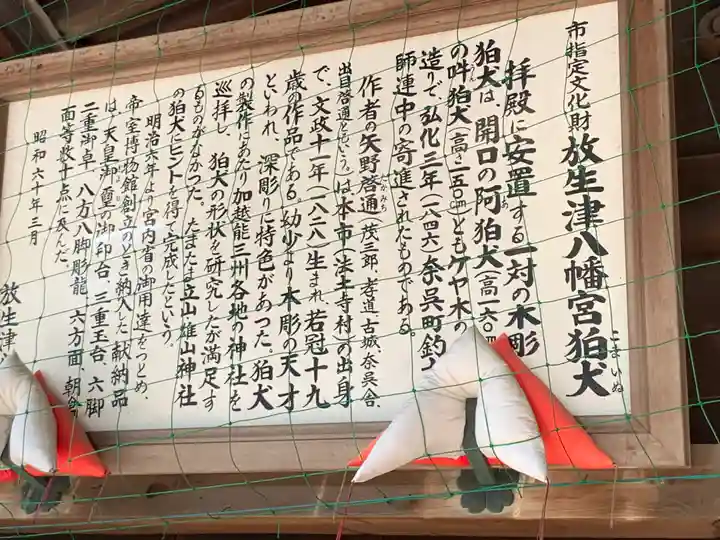 市指定文化財 放生津八幡宮狛犬
こまいぬ
拝殿に安置する一対の木彫
狛犬は、開口の阿狛犬(高一六〇㎝)
の吽狛犬(高さ一五〇㎝)ともケヤ木の
造りで弘化三年(一八四六)奈呉町釣
師連中の寄進されたものである。
作者の矢野啓通(茂三郎、老道、古城、奈呉舎、
たかみち
出目啓通ともいう。)は本市(法土寺村)の出身
で、文政十一年(一八二八)生まれ、若冠十九
歳の作品である。幼少より木彫の天才
といわれ、深彫りに特色があった。狛犬
の製作にあたり加越能三州各地の神社を
巡拝し、狛犬の形状を研究したが満足す
るものがなかった。たまたま立山雄山神社
の狛犬にヒントを得て完成したという。
明治六年より宮内省の御用達をつとめ、
帝室博物館創立のとき納入した献納品
は、天皇御璽の御印台、三重玉台、六脚
二重御卓、八方八脚彫龍、六方面、朝
面等数十点に及んだ。
昭和六十年三月
放生津